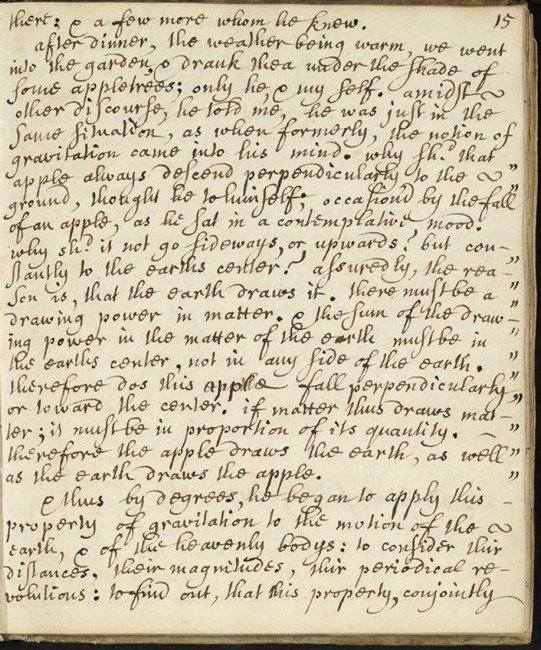 15
there; & a few more whom he knew.
after dinner, the weather being warm, we went
into the garden, & drank thea under the shade of
some appletrees; only he, & my self. amidst ~
other discourse, he told me, he was just in the
same situation, as when formerly, the notion of
gravitation came into his mind. why sh.d that
apple always descend perpendicularly to the ~ "
ground, thought he to himself; occasion'd by the fall "
of an apple, as he sat in a contemplative mood.
why sh.d it not go sideways, or upwards? but con- "
stantly to the earths center? assuredly, the rea- "
son is, that the earth draws it. there must be a "
drawing power in matter. & the sum of the draw- "
ing power in the matter of the earth must be in "
the earths center, not in any side of the earth. "
therefore dos this apple fall perpendicularly "
or toward the center. if matter thus draws mat- "
ter; it must be in proportion of its quantity. - "
therefore the apple draws the earth, as well "
as the earth draws the apple. "
& thus by degrees, he began to apply this -
property of gravitation to the motion of the ~
earth, & of the heavenly bodys: to consider thir
distances, their magnitudes, thir periodical re-
volutions: to find out, that this property, conjointly